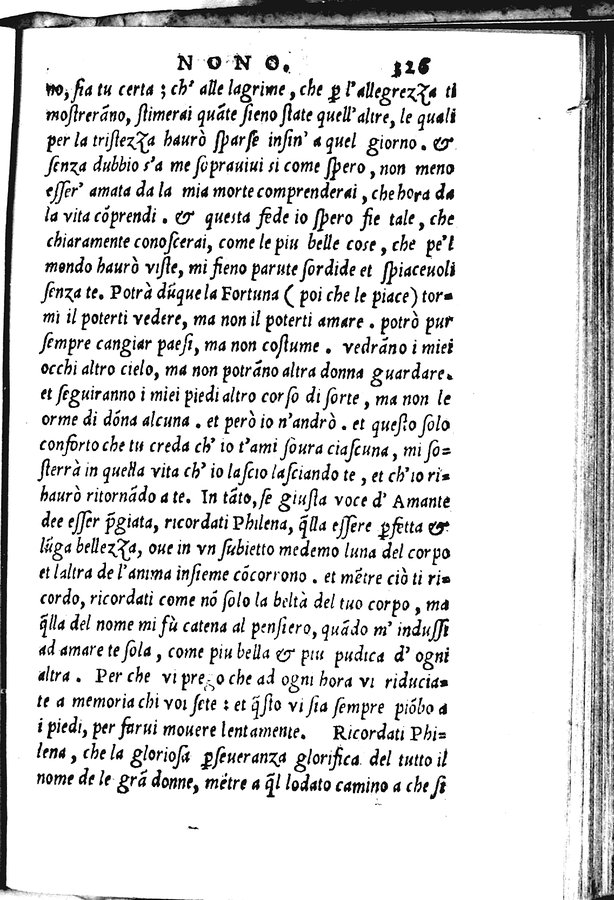 NONO. 326
no, sia tu certa ; ch' alle lagrime , che ꝑ l'allegrezza ti
mostrerãno, stimerai quãte sieno state quell' altre, le quali
per la tristezza haurò sparse insin' a quel giorno . &
senza dubbio s'a me soprauiui si come spero , non meno
esser' amata da la mia morte comprenderai , che hora da
la vita cõprendi . & questa fede io spero fie tale , che
chiaramente conoscerai, come le piu belle cose , che pe'l
mondo haurò viste, mi sieno parute sordide et spiaceuoli
senza te. Potrà dũque la Fortuna ( poi che le piace) tor=
mi il poterti vedere, ma non il poterti amare . potrò pur
sempre cangiar paesi, ma non costume . vedrãno i miei
occhi altro cielo, ma non potrãno altra donna guardare.
et seguiranno i miei piedi altro corso di sorte , ma non le
orme di dõna alcuna . et però io n'andrò . et questo solo
conforto che tu creda ch' io t'ami soura ciascuna, mi so=
sterrà in quella vita ch' io lascio lasciando te , et ch'io ri=
haurò ritornãdo a te. In tãto, se giusta voce d' Amante
dee esser p̃giata, ricordati Philena, q̃lla essere ꝑfetta &
lũga bellezza, oue in vn subietto medemo luna del corpo
et laltra de l'anima insieme cõcorrono . et mẽtre ciò ti ri=
cordo, ricordati come nõ solo la beltà del tuo corpo , ma
q̃lla del nome mi fù catena al pensiero, quãdo m' indussi
ad amare te sola , come piu bella & piu pudica d' ogni
altra . Per che vi prego che ad ogni hora vi riducia=
te a memoria chi voi sete : et q̃sto vi sia sempre piõbo a
i piedi, per farui mouere lentamente. Ricordati Phi=
lena , che la gloriosa ꝑseueranza glorifica del tutto il
nome de le grã donne, mẽtre a q̃l lodato camino a che si